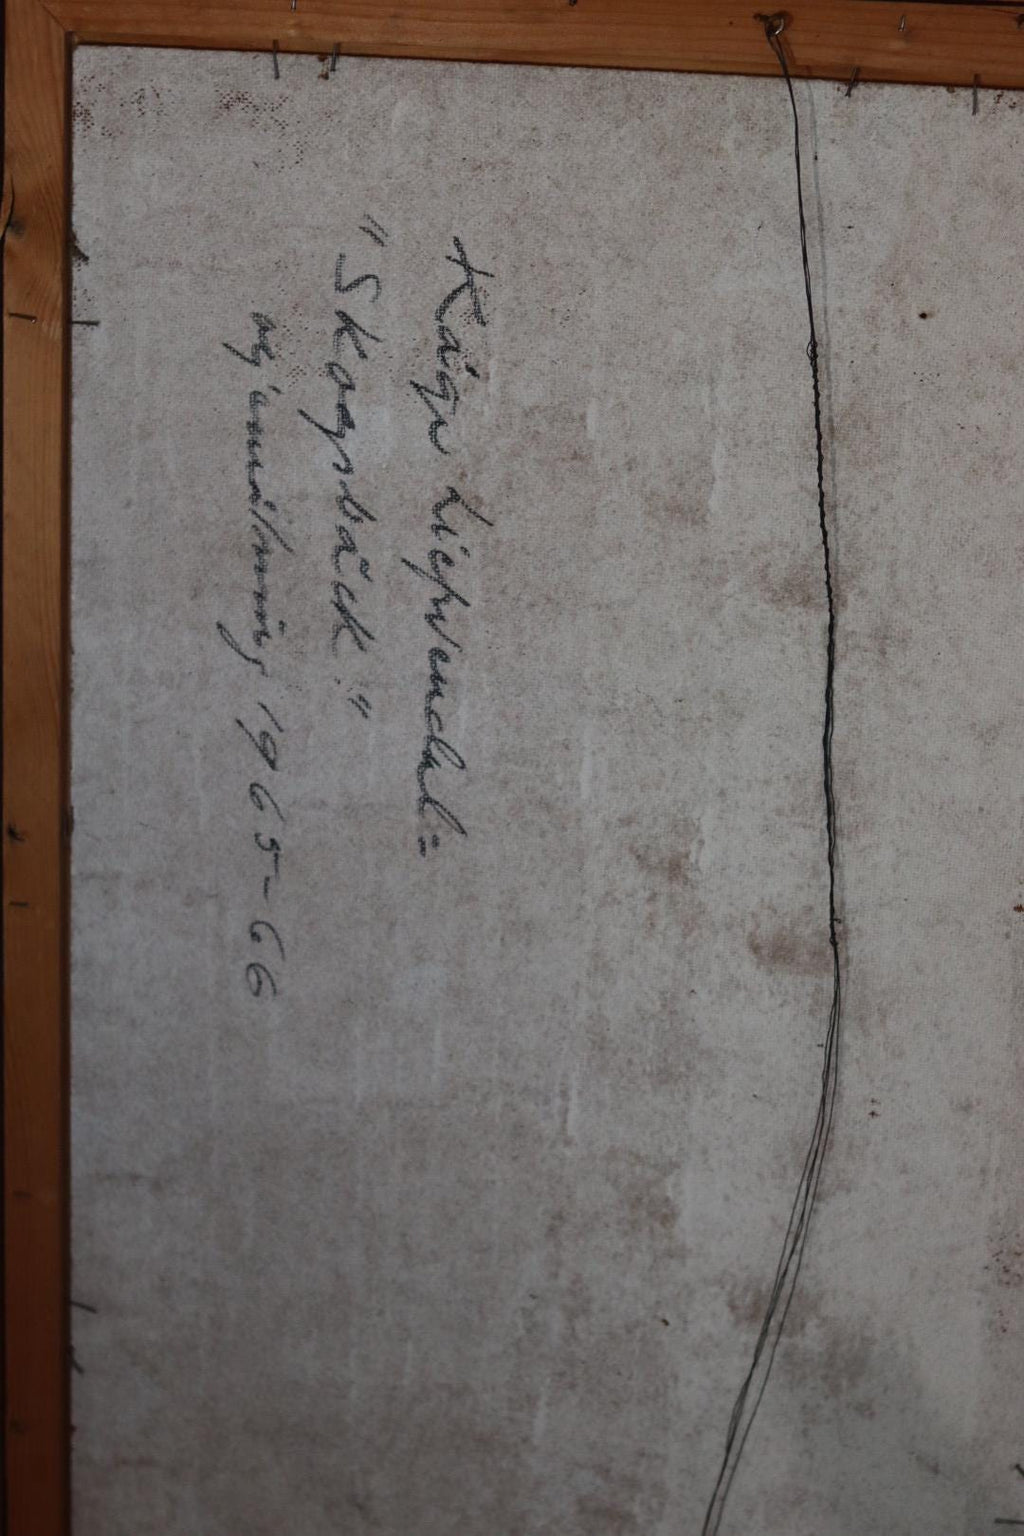 Kåge Liefwendal=
"Skogsbäck."
oljemålning 1965-66